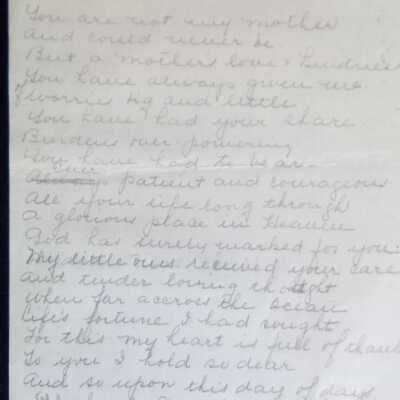 You are not my mother
And could never be
But a mothers love & kindness
You have always given me
Worries big and little
You have had your share
Burdens over powering
You have had to bear
Ever patient and courageous
All your life long through
A glorious place in Heaven
God has surely marked for you.
My little ones received your care
And tender loving thought
When far accross the ocean
Life's fortune I had sought
For this my heart is full of thank
To you I hold so dear
And so upon this day of days